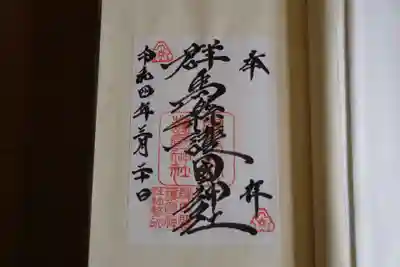 奉拝
群馬縣護國神社
令和四年三月二十日